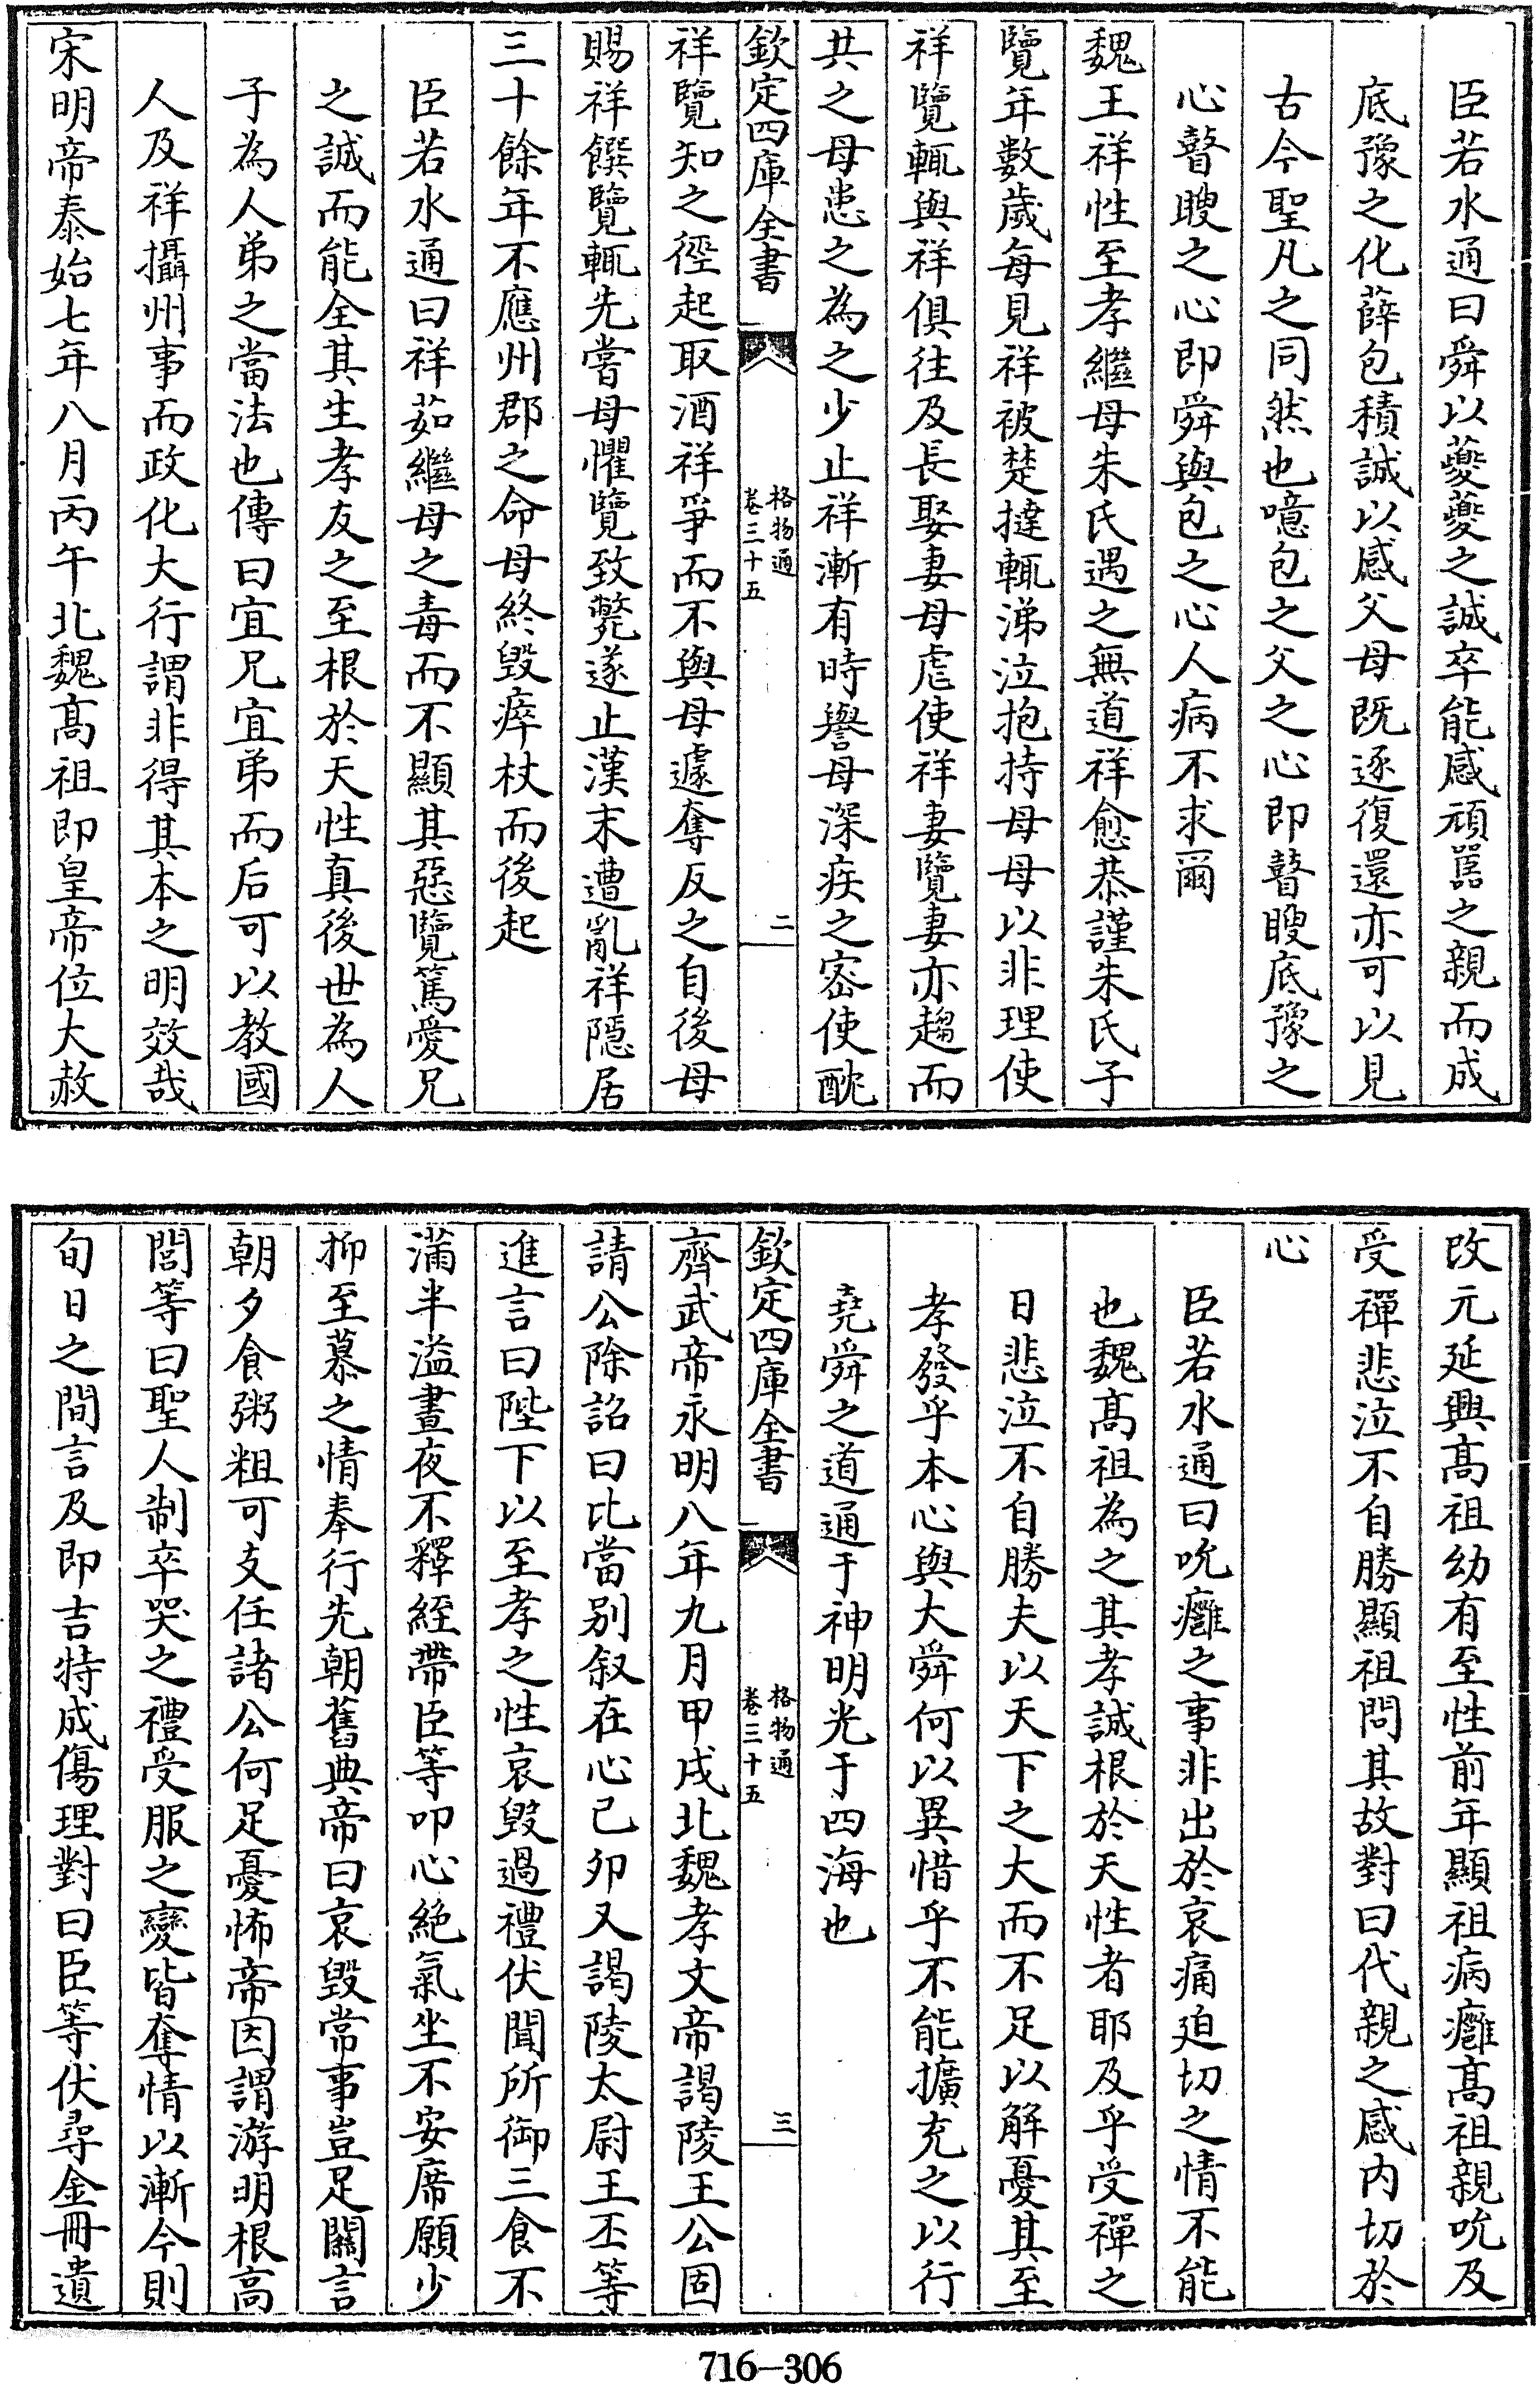 臣若水通曰舜以夔夔之誠卒能感頑嚚之親而成
底豫之化薛包積誠以感父母既逐復還亦可以見
古今聖凡之同然也噫包之父之心即瞽瞍底豫之
心瞽瞍之心即舜與包之心人病不求爾
魏王祥性至孝繼母朱氏遇之無道祥愈恭謹朱氏子
覽年數歲每見祥被楚撻輒涕泣抱持母母以非理使
祥覽輒與祥俱往及長娶妻母虐使祥妻覽妻亦趨而
共之母患之為之少止祥漸有時譽母深疾之密使酖
欽定四庫全書
格物通
卷三十五
二
祥覽知之徑起取酒祥爭而不與母遽奪反之自後母
賜祥饌覽輒先嘗母懼覽致斃遂止漢末遭亂祥隱居
三十餘年不應州郡之命母終毀瘁杖而後起
臣若水通曰祥茹繼母之毒而不顯其惡覽篤愛兄
之誠而能全其生孝友之至根於天性真後世為人
子為人弟之當法也傳曰宜兄宜弟而后可以教國
人及祥攝州事而政化大行謂非得其本之明效哉
宋明帝泰始七年八月丙午北魏高祖即皇帝位大赦
改元延興高祖幼有至性前年顯祖病癰高祖親吮及
受禪悲泣不自勝顯祖問其故對曰代親之感內切於
心
臣若水通曰吮癰之事非出於哀痛迫切之情不能
也魏高祖為之其孝誠根於天性者耶及乎受禪之
日悲泣不自勝夫以天下之大而不足以解憂其至
孝發乎本心與大舜何以異惜乎不能擴充之以行
堯舜之道通于神明光于四海也
欽定四庫全書
格物通
卷三十五
三
齊武帝永明八年九月甲戌北魏孝文帝謁陵王公固
請公除詔曰比當別叙在心己卯又謁陵太尉王丕等
進言曰陛下以至孝之性哀毀過禮伏聞所御三食不
滿半溢晝夜不釋絰帶臣等叩心絕氣坐不安席願少
抑至慕之情奉行先朝舊典帝曰哀毀常事豈足關言
朝夕食粥粗可支任諸公何足憂怖帝因謂游明根高
閭等曰聖人制卒哭之禮受服之變皆奪情以漸今則
旬日之間言及即吉特成傷理對曰臣等伏尋金冊遺
716—306